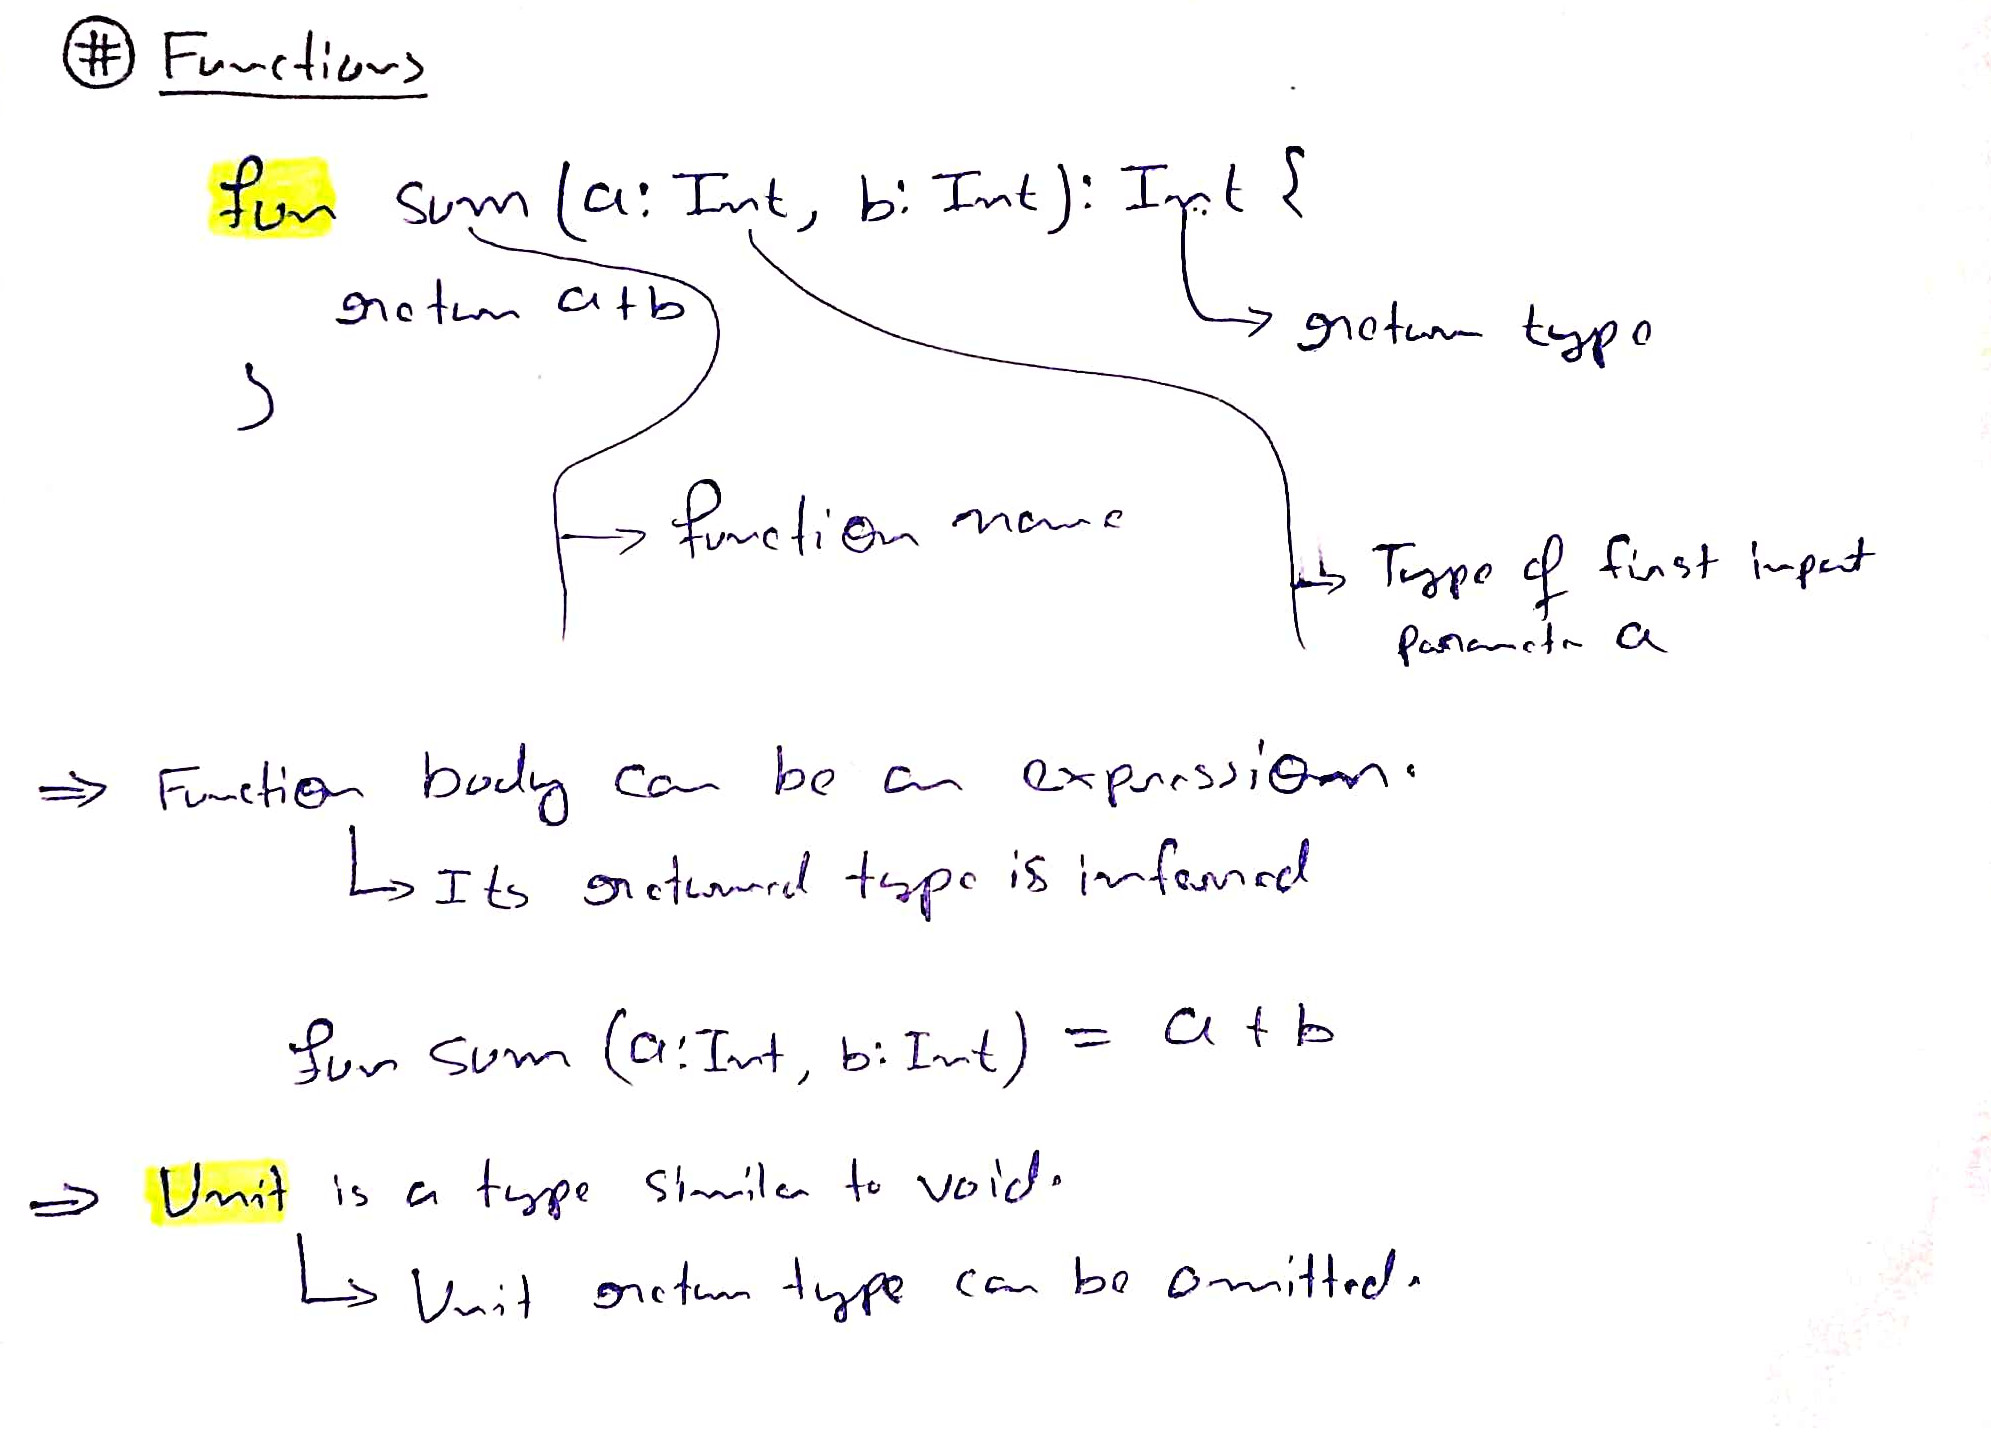 # Functions
fun sum (a: Int, b: Int): Int {
return a+b
→ return type
}
→ function name
→ Type of first input
parameter a
⇒ Function body can be an expression.
↳ Its returned type is inferred
fun sum (a: Int, b: Int) = a + b
⇒ Unit is a type similar to void.
↳ Unit return type can be omitted.